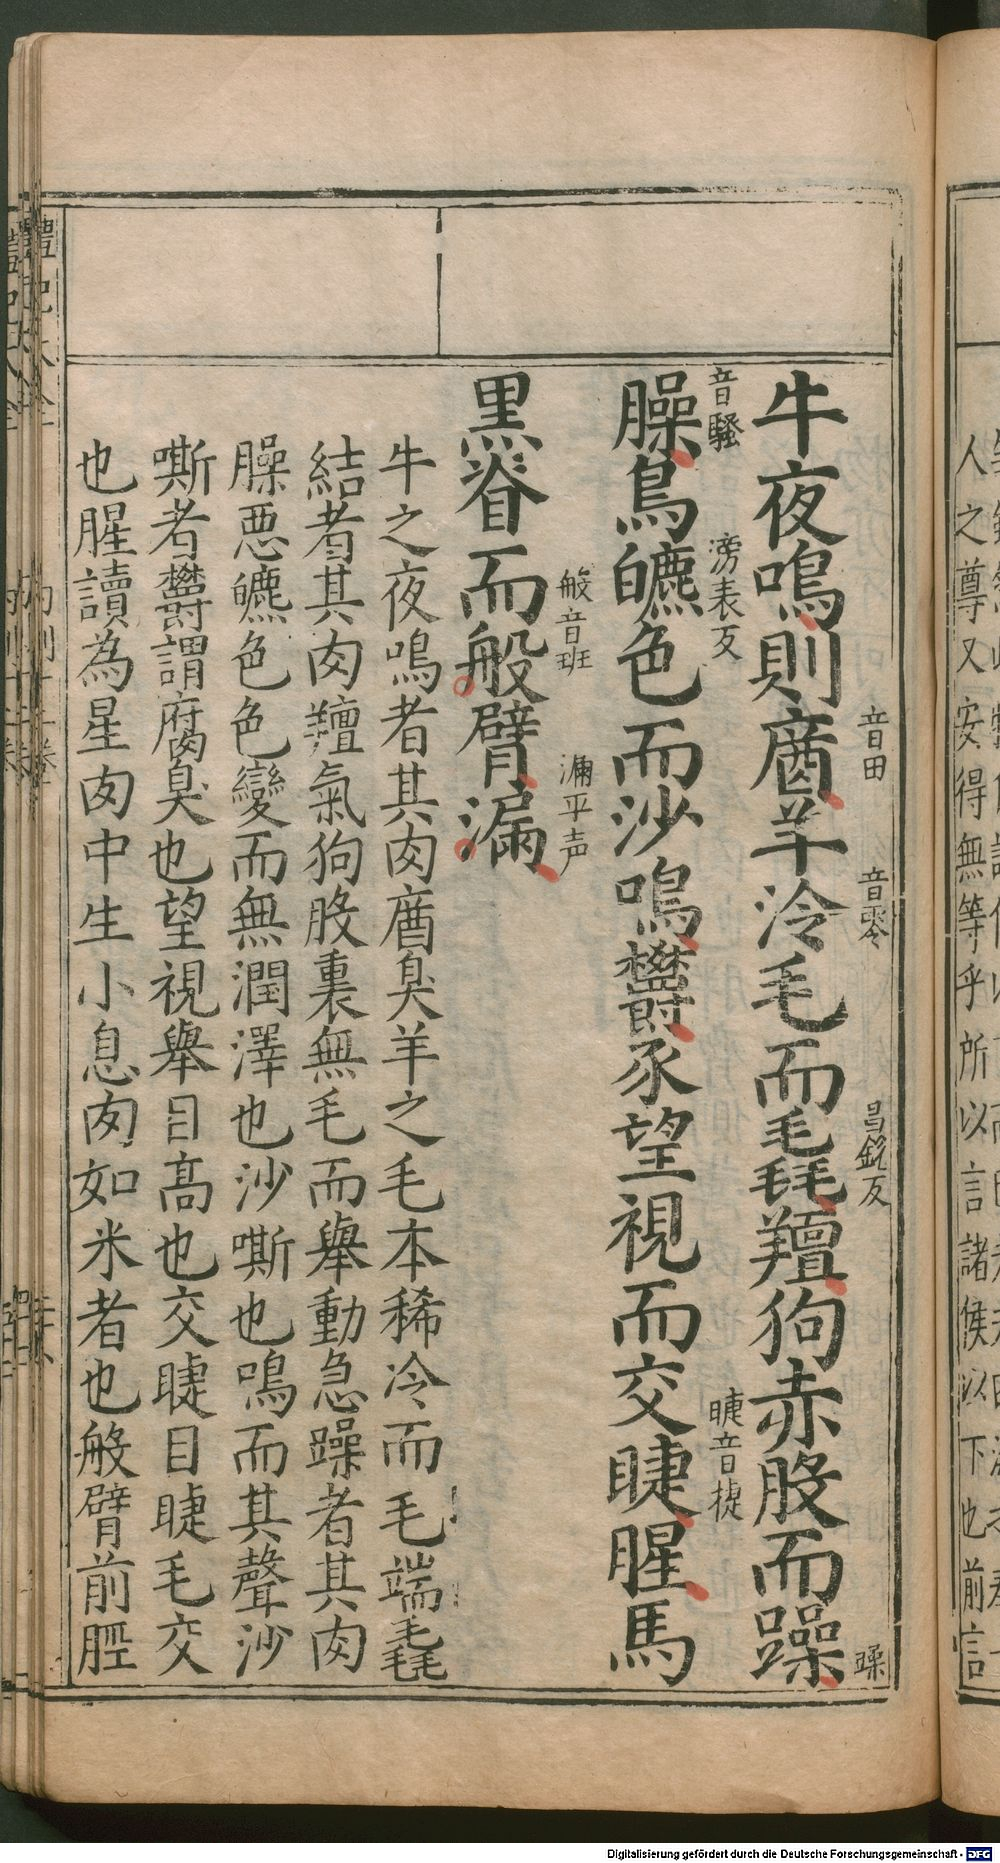 牛夜鳴則庮羊泠毛而毳羶狗赤股而躁
音由
音零
昌銳反
躁
臊鳥皫色而沙鳴鬱豕望視而交睫腥馬
音騷
滂表反
睫音㨗
黑脊而般臂漏
般音班
漏平声
牛之夜鳴者其肉庮臭羊之毛本稀冷而毛端毳
結者其肉羶氣狗股裏無毛而舉動急躁者其肉
臊惡皫色色變而無潤澤也沙嘶也鳴而其聲沙
嘶者鬱謂腐臭也望視舉目高也交睫目睫毛交
也腥讀為星肉中生小息肉如米者也般臂前脛
人之尊又安得無等乎所以言諸侯以下也前言
Digitalisierung gefördert durch die Deutsche Forschungsgemeinschaft - DFG